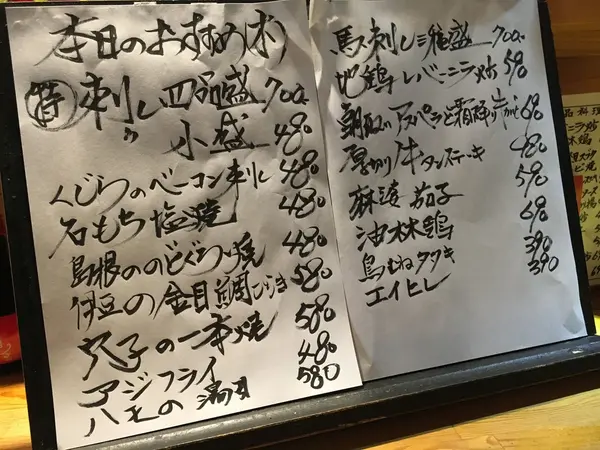 本日のおすすめ(木)
特 刺し四点盛 700
〃 小盛 480
くじらのベーコン刺し 480
石もち塩焼 480
島根ののどぐろ焼 480
伊豆の金目鯛ひらき 580
穴子の一本焼 580
アジフライ 480
ハモの湯引 580
馬刺し三種盛 700
地鶏レバーニラ炒 590
朝取りアスパラと霜降り 680
厚切り牛タンステーキ 480
麻婆茄子 590
油林鶏 690
鳥むねタタキ 390
エイヒレ 390